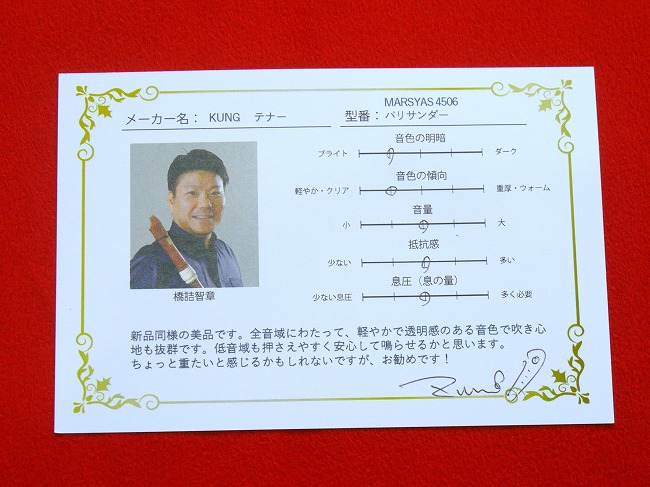 MARSYAS 4506
メーカー名： KUNG テナー 型番：パリサンダー
音色の明暗
ブライト ダーク
音色の傾向
軽やか・クリア 重厚・ウォーム
音量
小 大
抵抗感
少ない 多い
息圧（息の量）
少ない息圧 多く必要
橋詰智章
新品同様の美品です。全音域にわたって、軽やかで透明感のある音色で吹き心
地も抜群です。低音域も押さえやすく安心して鳴らせるかと思います。
ちょっと重たいと感じるかもしれないですが、お勧めです！